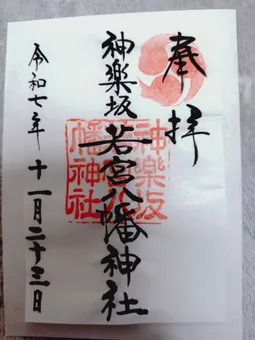 奉拝
神楽坂若宮八幡神社
神楽坂
若宮八
幡神社
令和七年 十一月二十三日